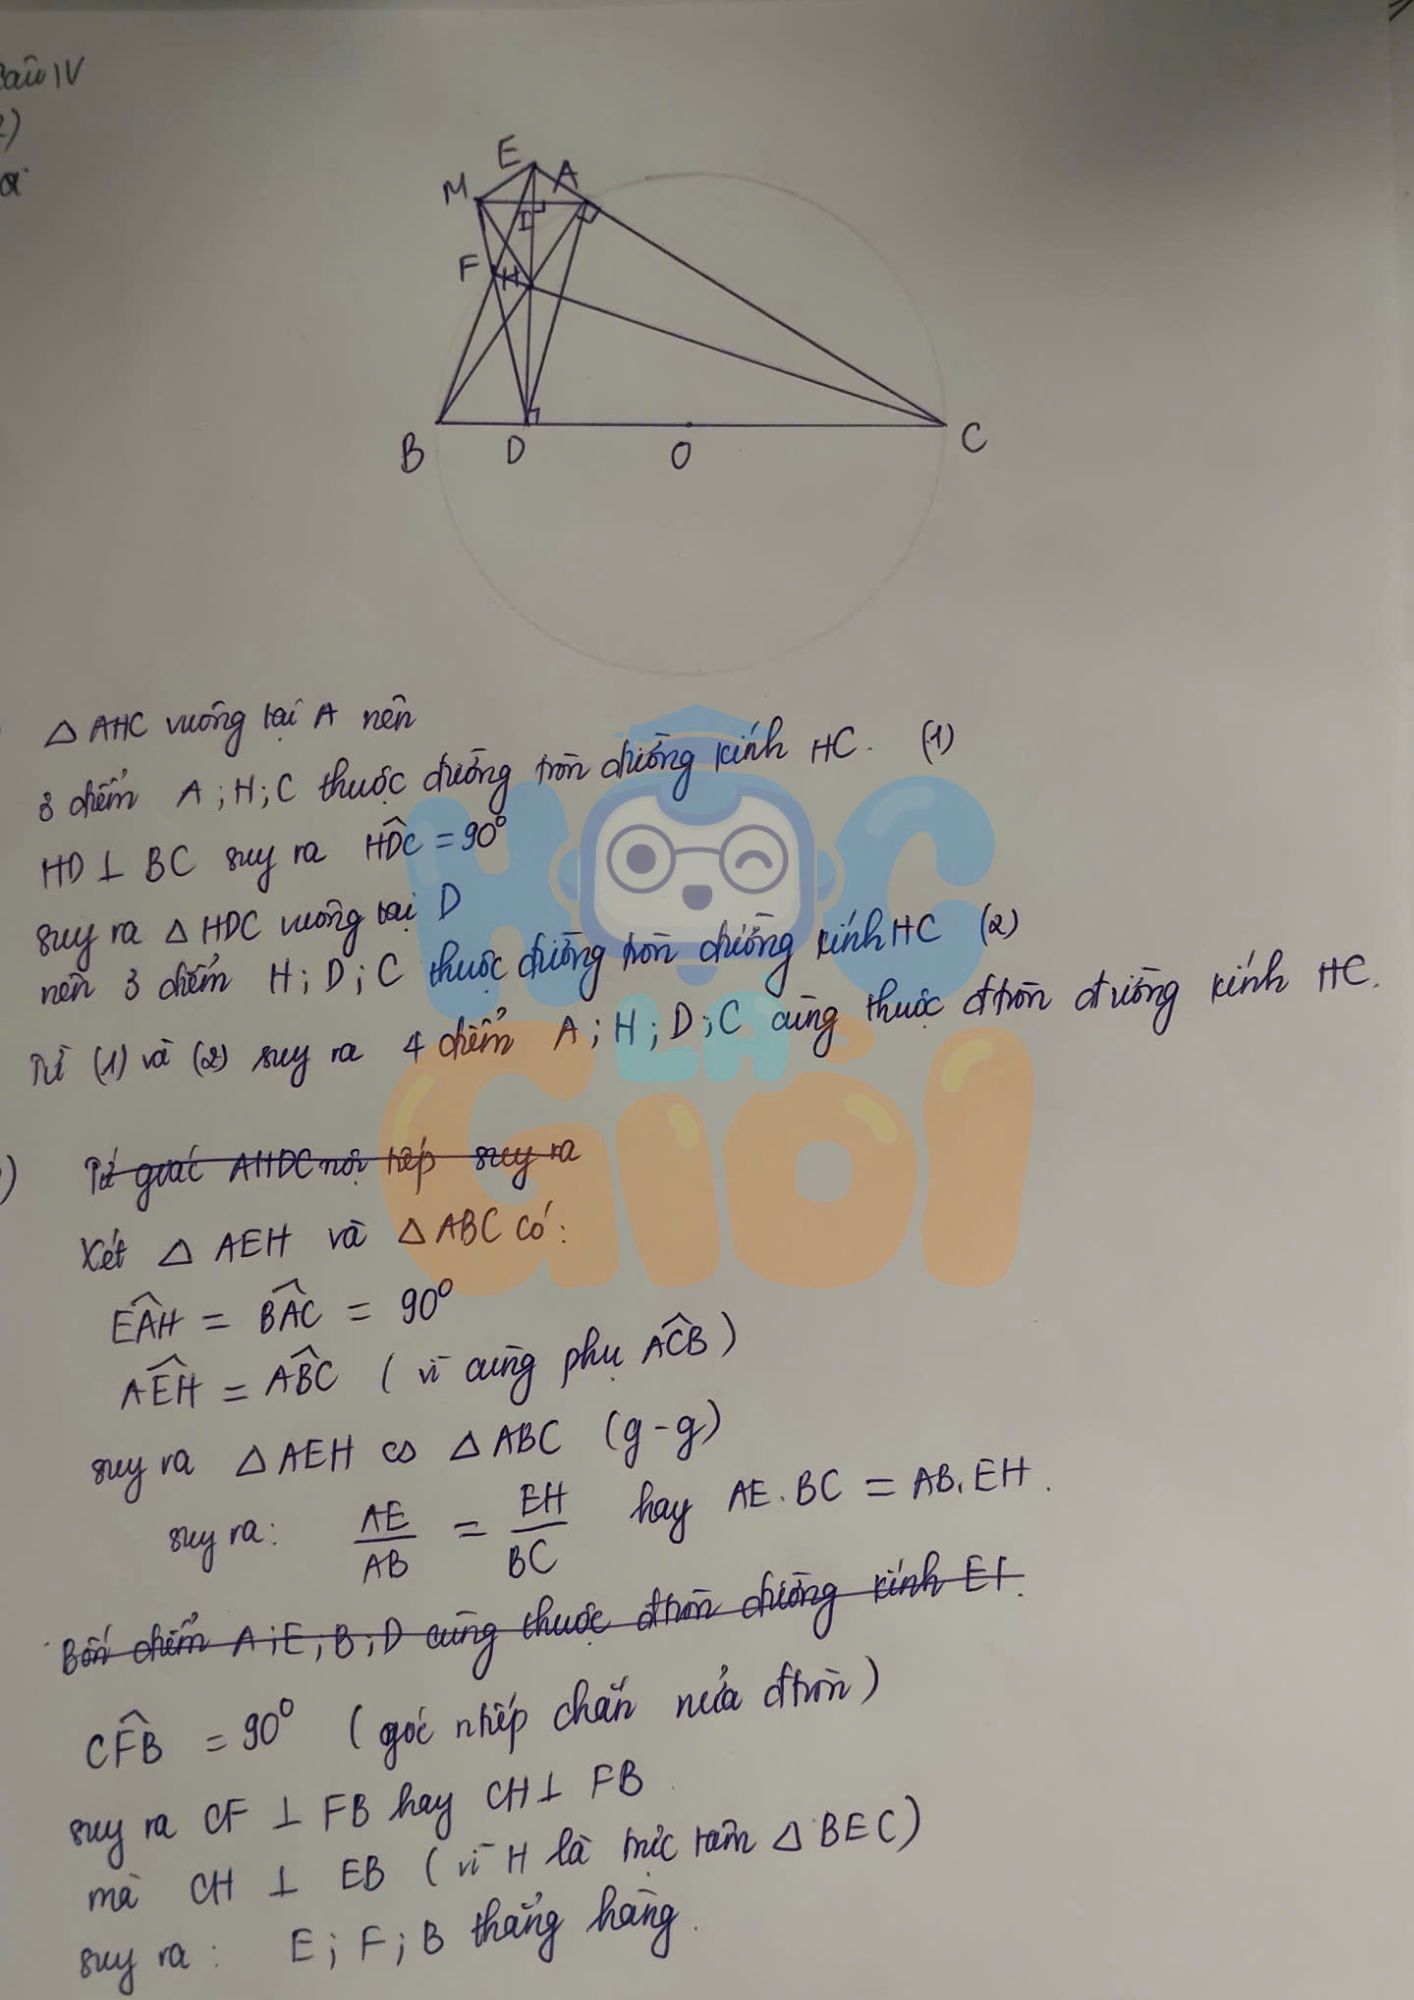 Câu IV
2)
a
E
A
M
I
F
H
B
D
O
C
△ AHC vuông tại A nên
3 điểm A ; H ; C thuộc đường tròn đường kính HC. (1)
HD ⊥ BC suy ra HDC = 90°
suy ra △ HDC vuông tại D
nên 3 điểm H ; D ; C thuộc đường tròn đường kính HC (2)
Từ (1) và (2) suy ra 4 điểm A ; H ; D ; C cùng thuộc đtròn đường kính HC.
) Tứ giác AHDC nội tiếp suy ra
Xét △ AEH và △ ABC có :
EAH = BAC = 90°
AEH = ABC ( vì cùng phụ ACB )
suy ra △ AEH ∽ △ ABC (g-g)
suy ra: AE/AB = EH/BC hay AE . BC = AB . EH .
Bốn điểm A ; E ; B ; D cùng thuộc đtròn đường kính
CFB = 90° ( góc ntiếp chắn nửa đtròn )
suy ra CF ⊥ FB hay CH ⊥ FB
mà CH ⊥ EB ( vì H là trực tâm △ BEC )
suy ra : E ; F ; B thẳng hàng .
HỌC
LÀ
GIỎI